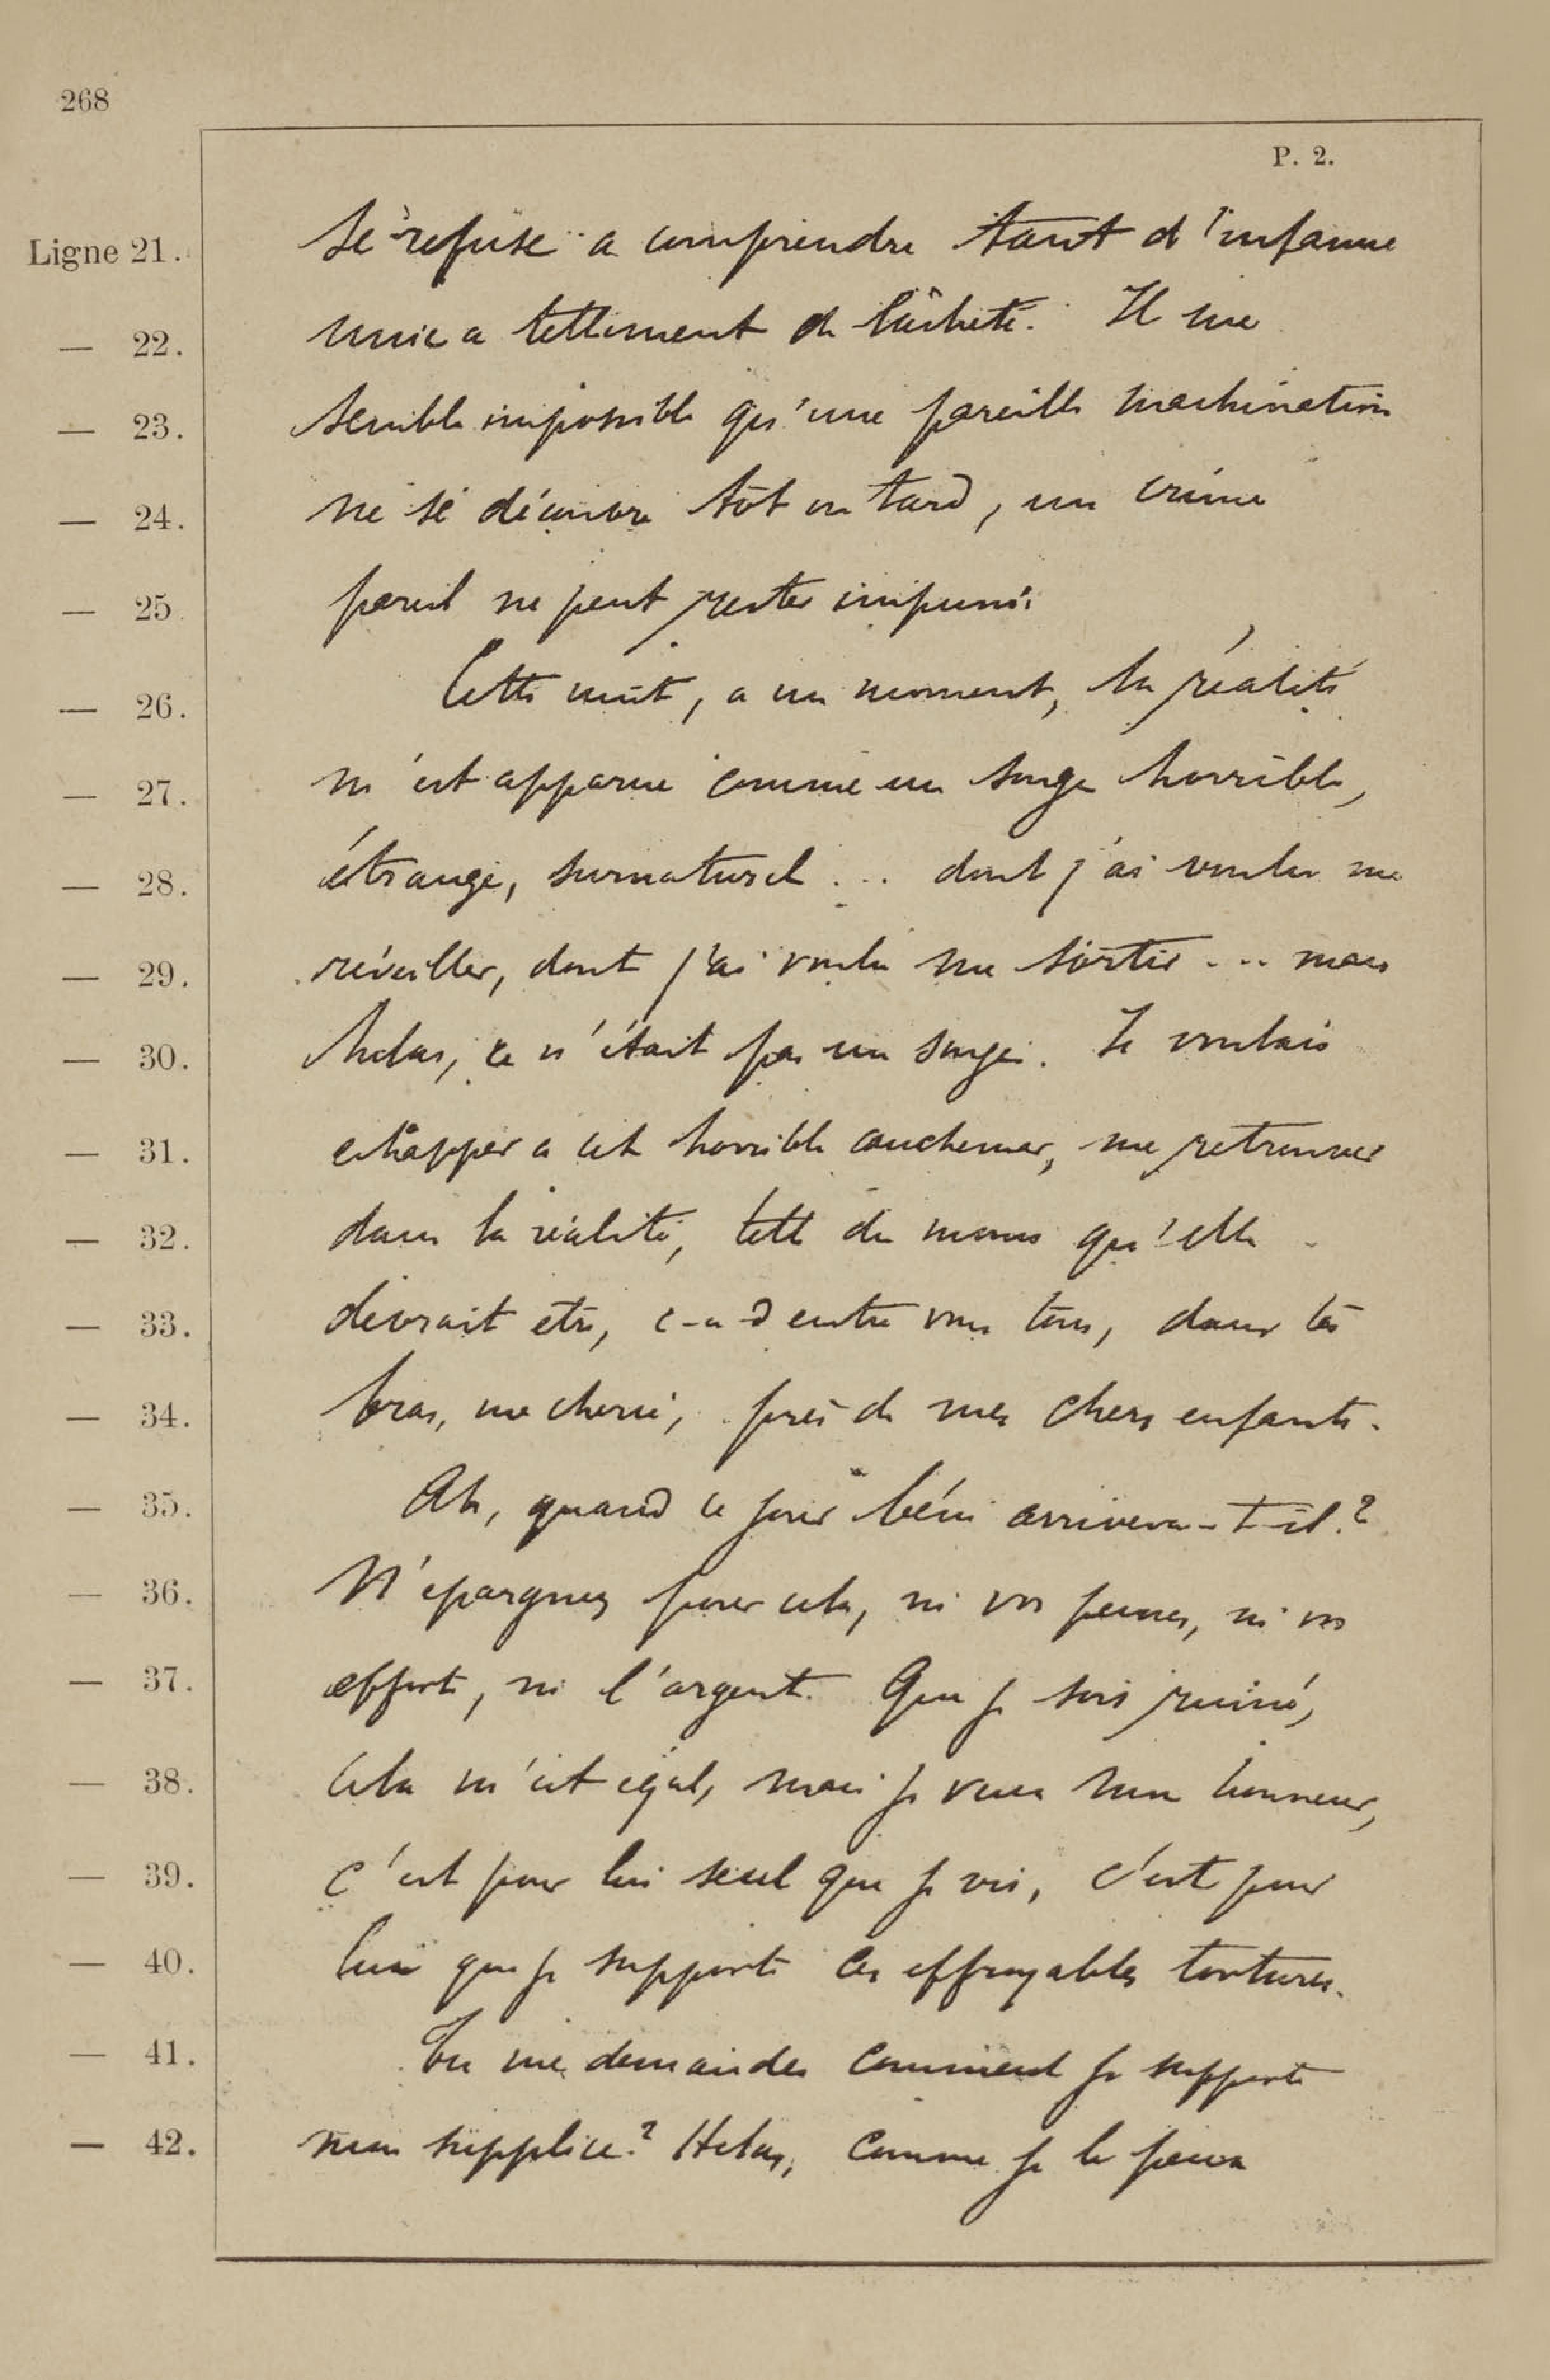 268
P. 2.
Ligne 21. se refuse a comprendre tant d'infamie
— 22. unie a tellement de lâcheté. Il me
— 23. semble impossible qu'une pareille machination
— 24. ne se découvre tôt ou tard, un crime
— 25. pareil ne peut rester impuni.
— 26. Cette nuit, a un moment, la réalité
— 27. m'est apparue comme un songe horrible,
— 28. étrange, surnaturel ... dont j'ai voulu me
— 29. réveiller, dont j'ai voulu me sortir ... mais
— 30. helas, ce n'était pas un songe. Je voulais
— 31. echapper a cet horrible cauchemar, me retrouver
— 32. dans la réalité, telle du moins qu'elle
— 33. devrait etre, c-a-d entre vous tous, dans tes
— 34. bras, ma cherie, près de mes chers enfants.
— 35. Ah, quand ce jour béni arrivera-t-il?
— 36. N'epargnez pour cela, ni vos peines, ni vos
— 37. efforts, ni l'argent. Que je sois ruiné,
— 38. cela m'est egal, mais je veux mon honneur,
— 39. c'est pour lui seul que je vis, c'est pour
— 40. lui que je supporte ces effroyables tortures.
— 41. Tu me demandes comment je supporte
— 42. mon supplice? Helas, comme je le peux